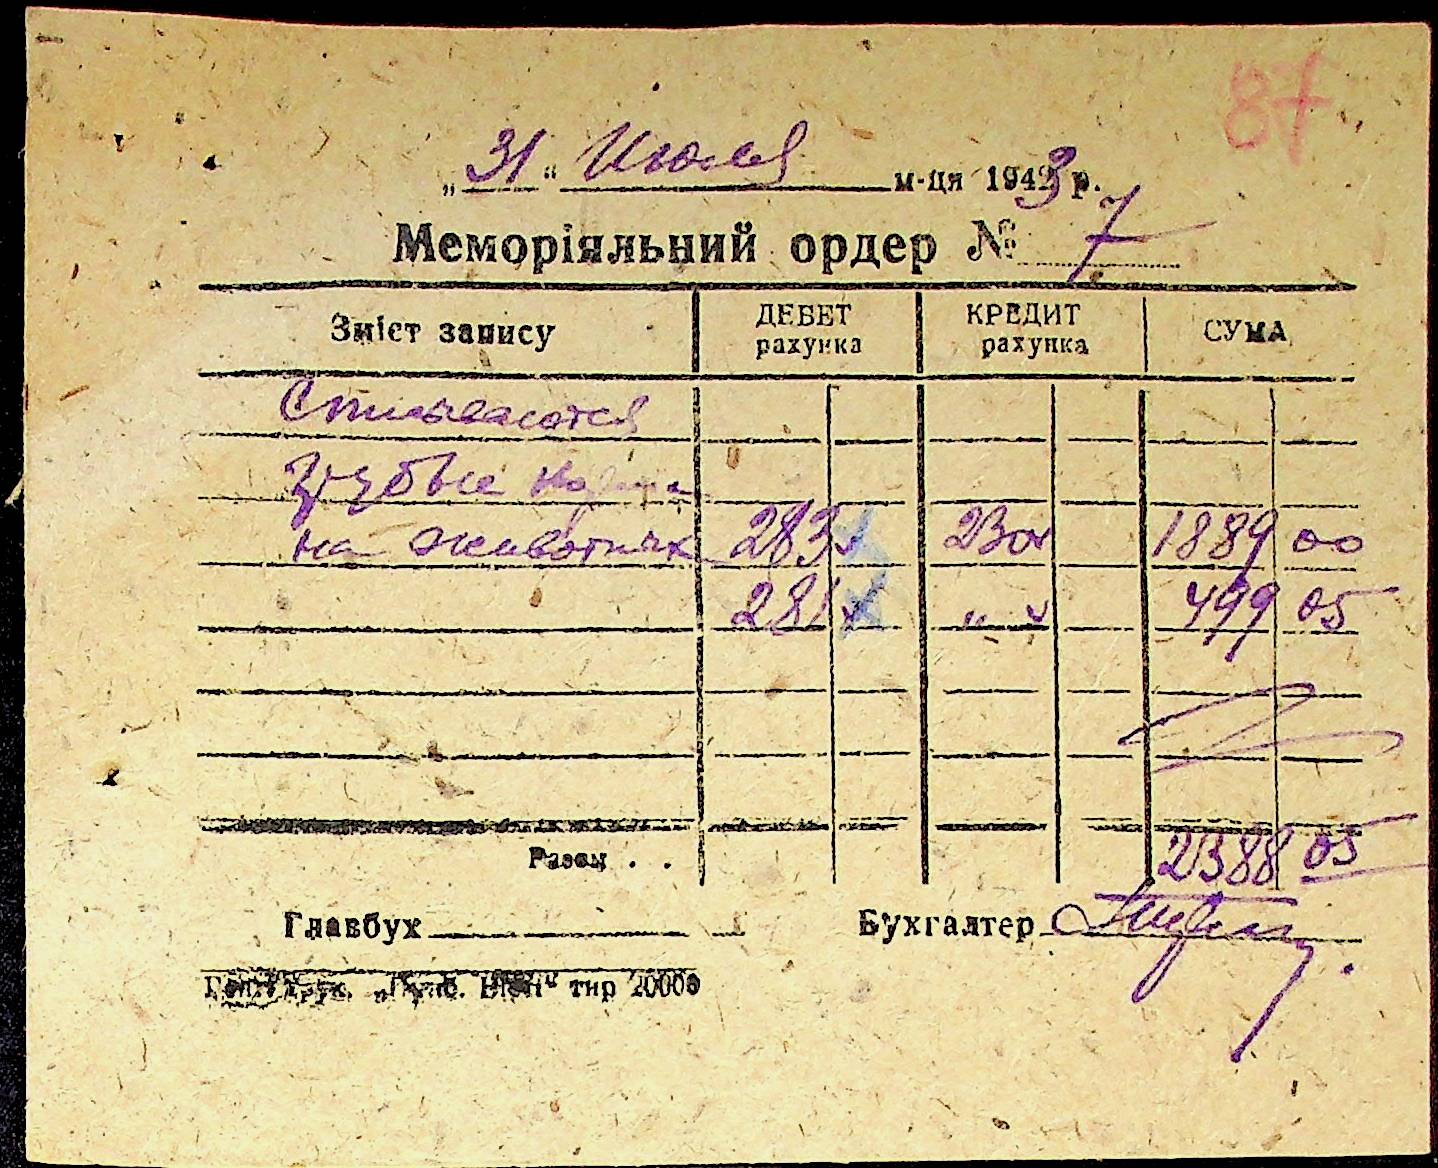 87
„31“ Июля м-ця 1943 р.
Меморіяльний ордер № 7
Зміст запису ДЕБЕТ рахунка КРЕДИТ рахунка СУМА
Списываются
грубые корма
на животных 283 230 1889 00
281 „ 499 05
Разом . . 2388 05
Главбух Бухгалтер
тир 20000